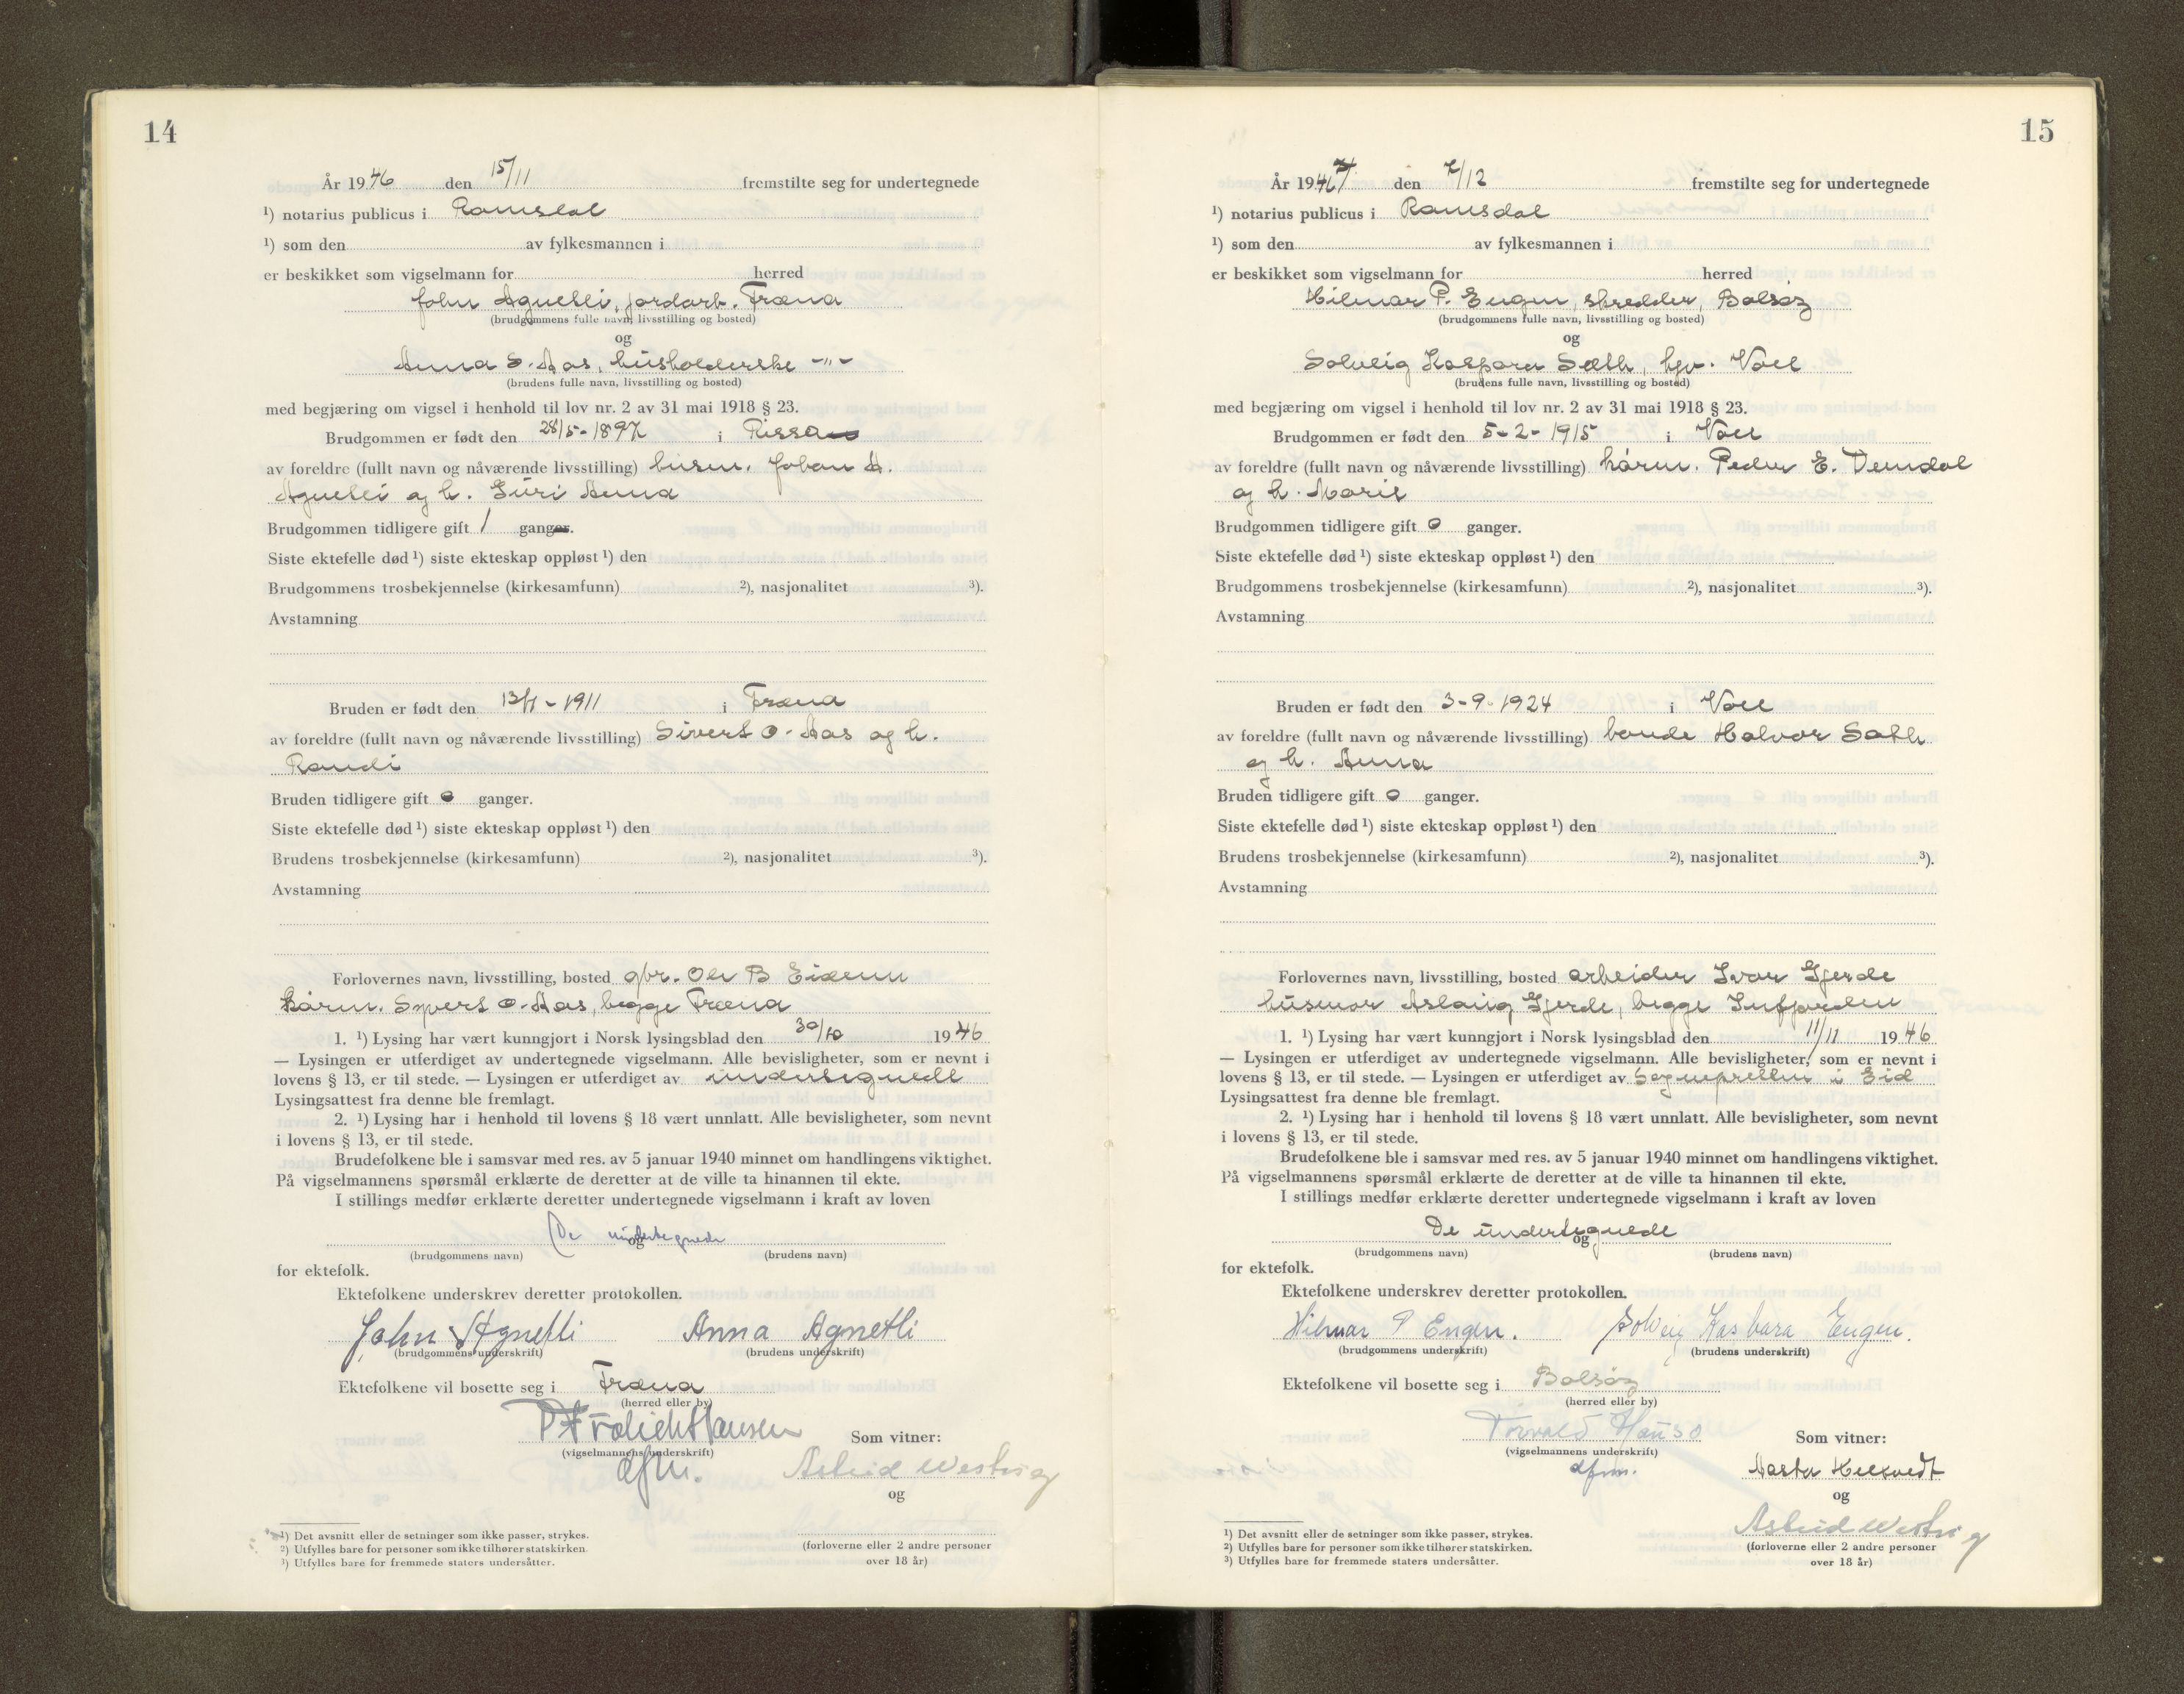 14
År 1946 den 15/11 fremstilte seg for undertegnede
¹) notarius publicus i Romsdal
¹) som den av fylkesmannen i
er beskikket som vigselmann for herred
John Agnetli, jordarb. Fræna
(brudgommens fulle navn, livsstilling og bosted)
og
Anna S. Aas, husholderske -"-
(brudens fulle navn, livsstilling og bosted)
med begjæring om vigsel i henhold til lov nr. 2 av 31 mai 1918 § 23.
Brudgommen er født den 28/5-1897 i Rissa
av foreldre (fullt navn og nåværende livsstilling) husm. Johan A.
Agnetli og h. Guri Anna
Brudgommen tidligere gift 1 ganger.
Siste ektefelle død ¹) siste ekteskap oppløst ¹) den
Brudgommens trosbekjennelse (kirkesamfunn) ²), nasjonalitet ³).
Avstamning
Bruden er født den 13/1-1911 i Fræna
av foreldre (fullt navn og nåværende livsstilling) Sivert O. Aas og h.
Randi
Bruden tidligere gift 0 ganger.
Siste ektefelle død ¹) siste ekteskap oppløst ¹) den
Brudens trosbekjennelse (kirkesamfunn) ²), nasjonalitet ³).
Avstamning
Forlovernes navn, livsstilling, bosted gbr. Ole B Eidem
kårm. Syvert O. Aas, begge Fræna
1. ¹) Lysing har vært kunngjort i Norsk lysingsblad den 30/10 1946
— Lysingen er utferdiget av undertegnede vigselmann. Alle bevisligheter, som er nevnt i
lovens § 13, er til stede. — Lysingen er utferdiget av undertegnede
Lysingsattest fra denne ble fremlagt.
2. ¹) Lysing har i henhold til lovens § 18 vært unnlatt. Alle bevisligheter, som nevnt
i lovens § 13, er til stede.
Brudefolkene ble i samsvar med res. av 5 januar 1940 minnet om handlingens viktighet.
På vigselmannens spørsmål erklærte de deretter at de ville ta hinannen til ekte.
I stillings medfør erklærte deretter undertegnede vigselmann i kraft av loven
De undertegnede
og
(brudgommens navn) (brudens navn)
for ektefolk.
Ektefolkene underskrev deretter protokollen.
John Agnetli Anna Agnetli
(brudgommens underskrift) (brudens underskrift)
Ektefolkene vil bosette seg i Fræna
(herred eller by)
Frølich Hansen Som vitner:
(vigselmannens underskrift)
dfm. Astrid Westvig
og
¹) Det avsnitt eller de setninger som ikke passer, strykes.
²) Utfylles bare for personer som ikke tilhører statskirken.
³) Utfylles bare for fremmede staters undersåtter.
(forloverne eller 2 andre personer
over 18 år)
15
År 1946 den 7/12 fremstilte seg for undertegnede
¹) notarius publicus i Romsdal
¹) som den av fylkesmannen i
er beskikket som vigselmann for herred
Hilmar P. Engen, skredder, Bolsøy
(brudgommens fulle navn, livsstilling og bosted)
og
Solveig Kaspara Sæth, hjv. Voll
(brudens fulle navn, livsstilling og bosted)
med begjæring om vigsel i henhold til lov nr. 2 av 31 mai 1918 § 23.
Brudgommen er født den 5-2-1915 i Voll
av foreldre (fullt navn og nåværende livsstilling) kårm. Peder E. Venndal
og h. Marit
Brudgommen tidligere gift 0 ganger.
Siste ektefelle død ¹) siste ekteskap oppløst ¹) den
Brudgommens trosbekjennelse (kirkesamfunn) ²), nasjonalitet ³).
Avstamning
Bruden er født den 3-9-1924 i Voll
av foreldre (fullt navn og nåværende livsstilling) bonde Halvor Sæth
og h. Anna
Bruden tidligere gift 0 ganger.
Siste ektefelle død ¹) siste ekteskap oppløst ¹) den
Brudens trosbekjennelse (kirkesamfunn) ²), nasjonalitet ³).
Avstamning
Forlovernes navn, livsstilling, bosted arbeider Ivar Gjerde
husmor Aslaug Gjerde, begge Innfjorden
1. ¹) Lysing har vært kunngjort i Norsk lysingsblad den 11/11 1946
— Lysingen er utferdiget av undertegnede vigselmann. Alle bevisligheter, som er nevnt i
lovens § 13, er til stede. — Lysingen er utferdiget av Sognepresten i Eid
Lysingsattest fra denne ble fremlagt.
2. ¹) Lysing har i henhold til lovens § 18 vært unnlatt. Alle bevisligheter, som nevnt
i lovens § 13, er til stede.
Brudefolkene ble i samsvar med res. av 5 januar 1940 minnet om handlingens viktighet.
På vigselmannens spørsmål erklærte de deretter at de ville ta hinannen til ekte.
I stillings medfør erklærte deretter undertegnede vigselmann i kraft av loven
De undertegnede
og
(brudgommens navn) (brudens navn)
for ektefolk.
Ektefolkene underskrev deretter protokollen.
Hilmar P Engen. Solveig Kasbara Engen.
(brudgommens underskrift) (brudens underskrift)
Ektefolkene vil bosette seg i Bolsøy
(herred eller by)
Torvald Hauso Som vitner:
(vigselmannens underskrift)
dfm. Aasta
og
Astrid Westvig
¹) Det avsnitt eller de setninger som ikke passer, strykes.
²) Utfylles bare for personer som ikke tilhører statskirken.
³) Utfylles bare for fremmede staters undersåtter.
(forloverne eller 2 andre personer
over 18 år)